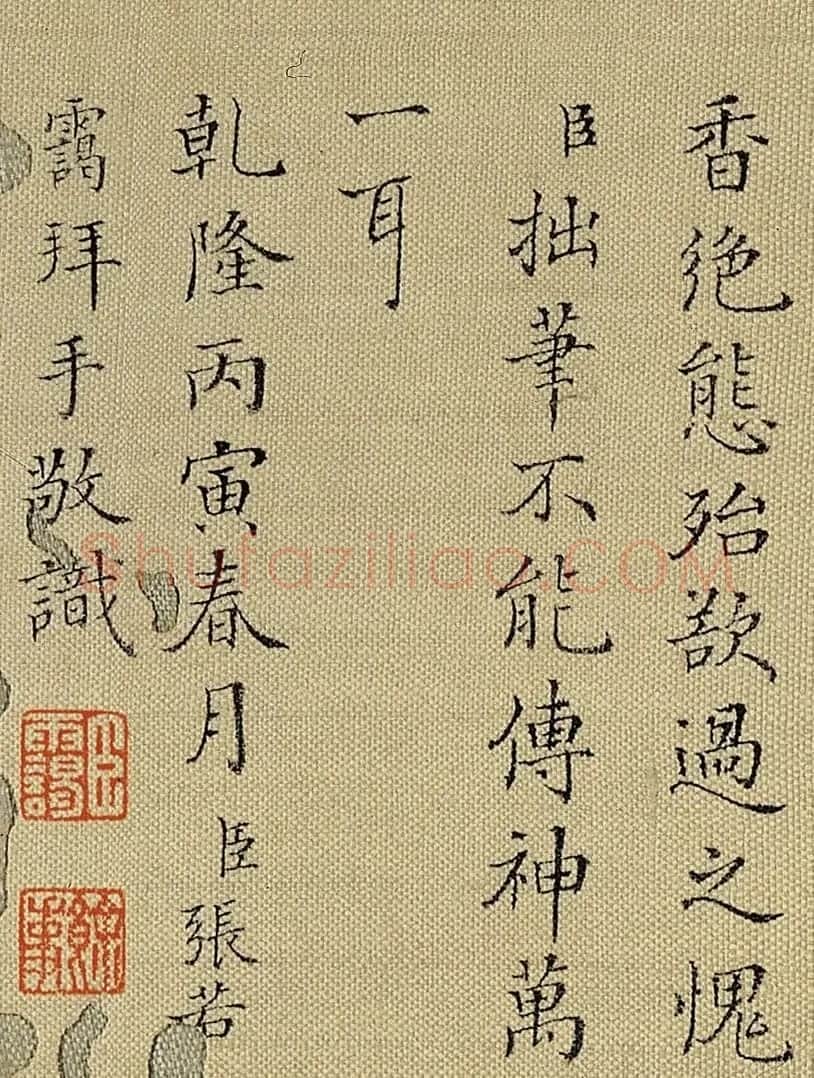 香絶態殆欲過之愧
臣拙筆不能傳神萬
一耳
乾隆丙寅春月臣張若
靄拜手敬識
Shufaziliao.COM